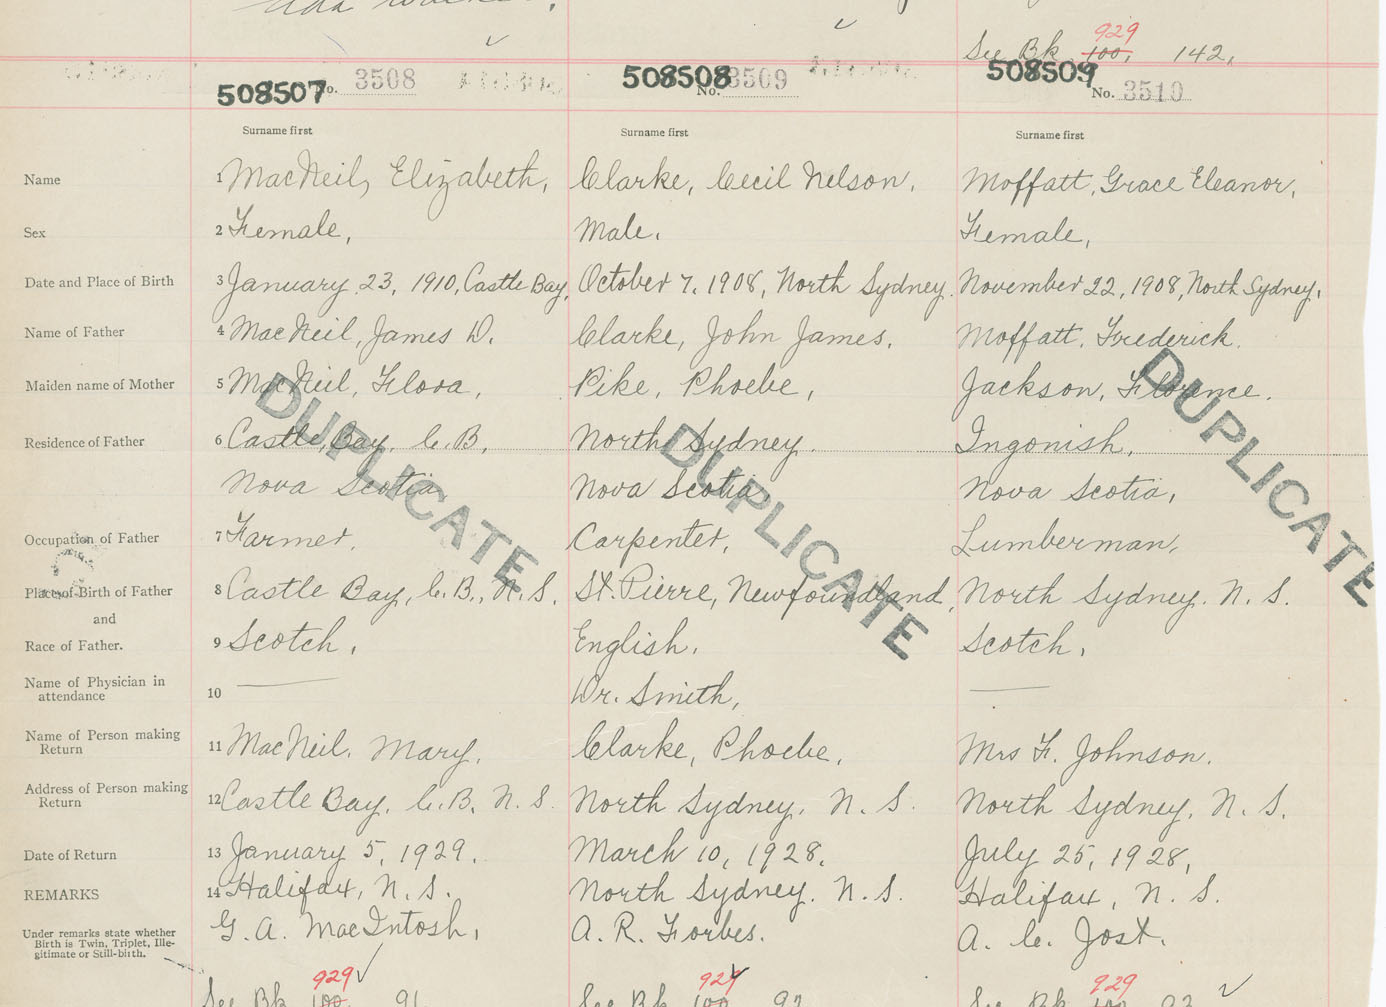 See Bk 100, 929 142,
508507 No. 3508 508508 No. 3509 508509 No. 3510
Surname first Surname first Surname first
Name 1 MacNeil, Elizabeth, Clarke, Cecil Nelson, Moffatt, Grace Eleanor,
Sex 2 Female, Male, Female,
Date and Place of Birth 3 January 23, 1910, Castle Bay, October 7, 1908, North Sydney. November 22, 1908, North Sydney,
Name of Father 4 MacNeil, James D. Clarke, John James. Moffatt, Frederick.
Maiden name of Mother 5 MacNeil, Flora, Pike, Phoebe, Jackson, Florence.
Residence of Father 6 Castle Bay, C.B, North Sydney. Ingonish,
Nova Scotia Nova Scotia Nova Scotia,
DUPLICATE DUPLICATE DUPLICATE
Occupation of Father 7 Farmer, Carpenter, Lumberman,
Place of Birth of Father 8 Castle Bay, C.B., N.S. St. Pierre, Newfoundland, North Sydney. N. S.
and
Race of Father. 9 Scotch, English, Scotch,
Name of Physician in
attendance 10 Dr. Smith,
Name of Person making
Return 11 MacNeil, Mary, Clarke, Phoebe, Mrs F. Johnson.
Address of Person making
Return 12 Castle Bay, C.B. N.S. North Sydney, N. S. North Sydney, N. S.
Date of Return 13 January 5, 1929, March 10, 1928, July 25, 1928,
REMARKS 14 Halifax, N. S. North Sydney. N. S. Halifax, N. S.
G. A. MacIntosh, A. R. Forbes. A. C. Jost.
Under remarks state whether
Birth is Twin, Triplet, Ille-
gitimate or Still-birth.
929 929 929
See Bk 100 91 See Bk 100 92 See Bk 100 93